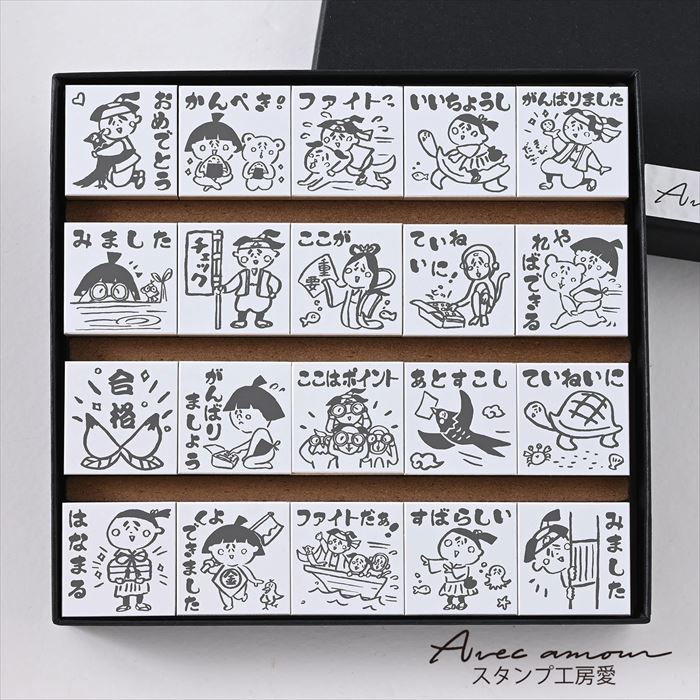 おめでとう
かんぺき!
ファイトっ
いいちょうし
がんばりました
みました
チェック
ここが
重要
ていね
いに!
やればできる
合格
がんばり
ましょう
ここはポイント
あとすこし
ていねいに
はなまる
よくできました
金
ファイトだぁ!
すばらしい
みました
Avec amour
スタンプ工房愛